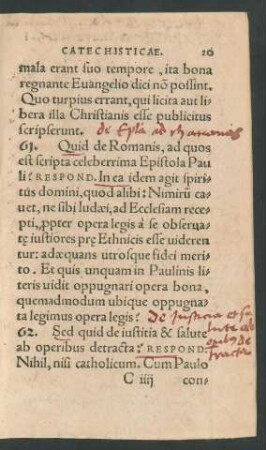 CATECHISTICAE. 20
mala erant suo tempore, ita bona
regnante Euangelio dici nō possint.
Quo turpius errant, qui licita aut li-
bera illa Christianis esse publicitus
scripserunt. de Epla ad rhomanos
61. Quid de Romanis, ad quos
est scripta celeberrima Epistola Pau
li? RESPOND. In ea idem agit spiri-
tus domini, quod alibi: Nimirū ca-
uet, ne sibi Iudæi, ad Ecclesiam rece-
pti, ꝓpter opera legis à se obserua-
tę iustiores prę Ethnicis esse uideren
tur: adæquans utrosque fidei meri-
to. Et quis unquam in Paulinis li-
teris uidit oppugnari opera bona,
quemadmodum ubique oppugna-
ta legimus opera legis? De Justicia et sa
lute ab
operibus de
tracta
62. Sed quid de iustitia & salute
ab operibus detracta? RESPOND.
Nihil, nisi catholicum. Cum Paulo
C iiij con-